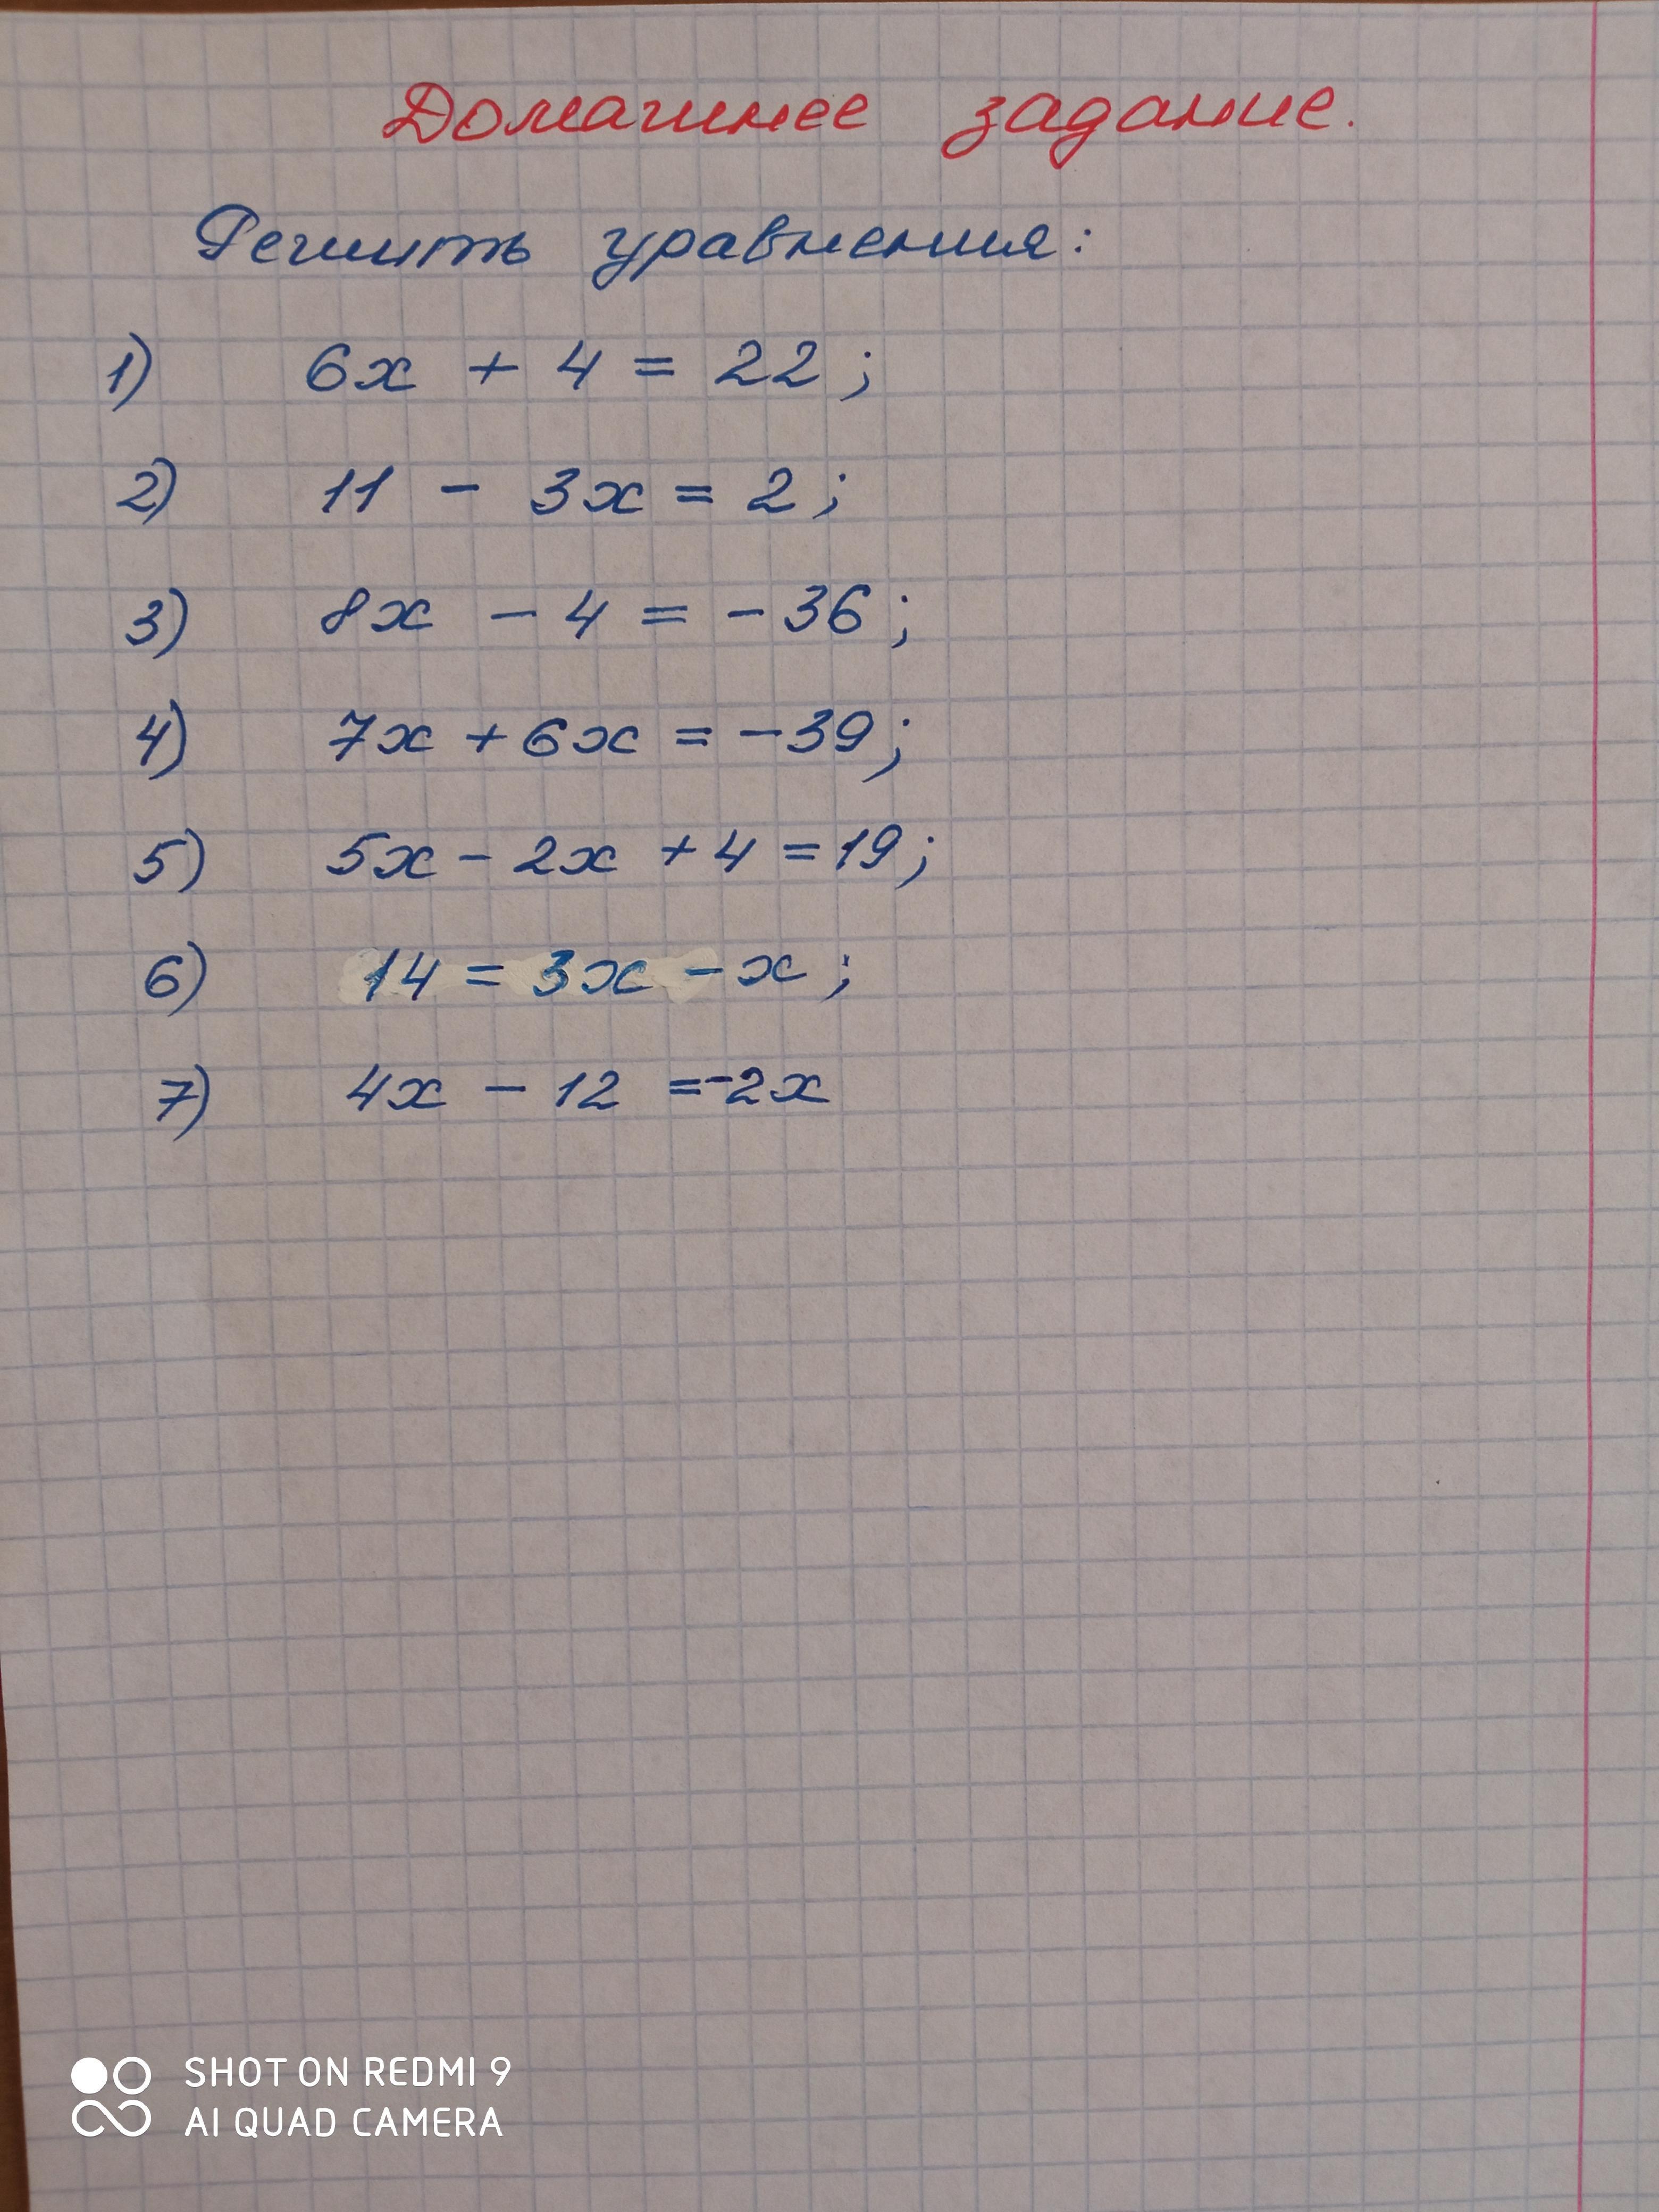 Домашнее задание.
Решить уравнения:
1) 6x + 4 = 22;
2) 11 - 3x = 2;
3) 8x - 4 = -36;
4) 7x + 6x = -39;
5) 5x - 2x + 4 = 19;
6) 14 = 3x - x;
7) 4x - 12 = -2x
SHOT ON REDMI 9
AI QUAD CAMERA